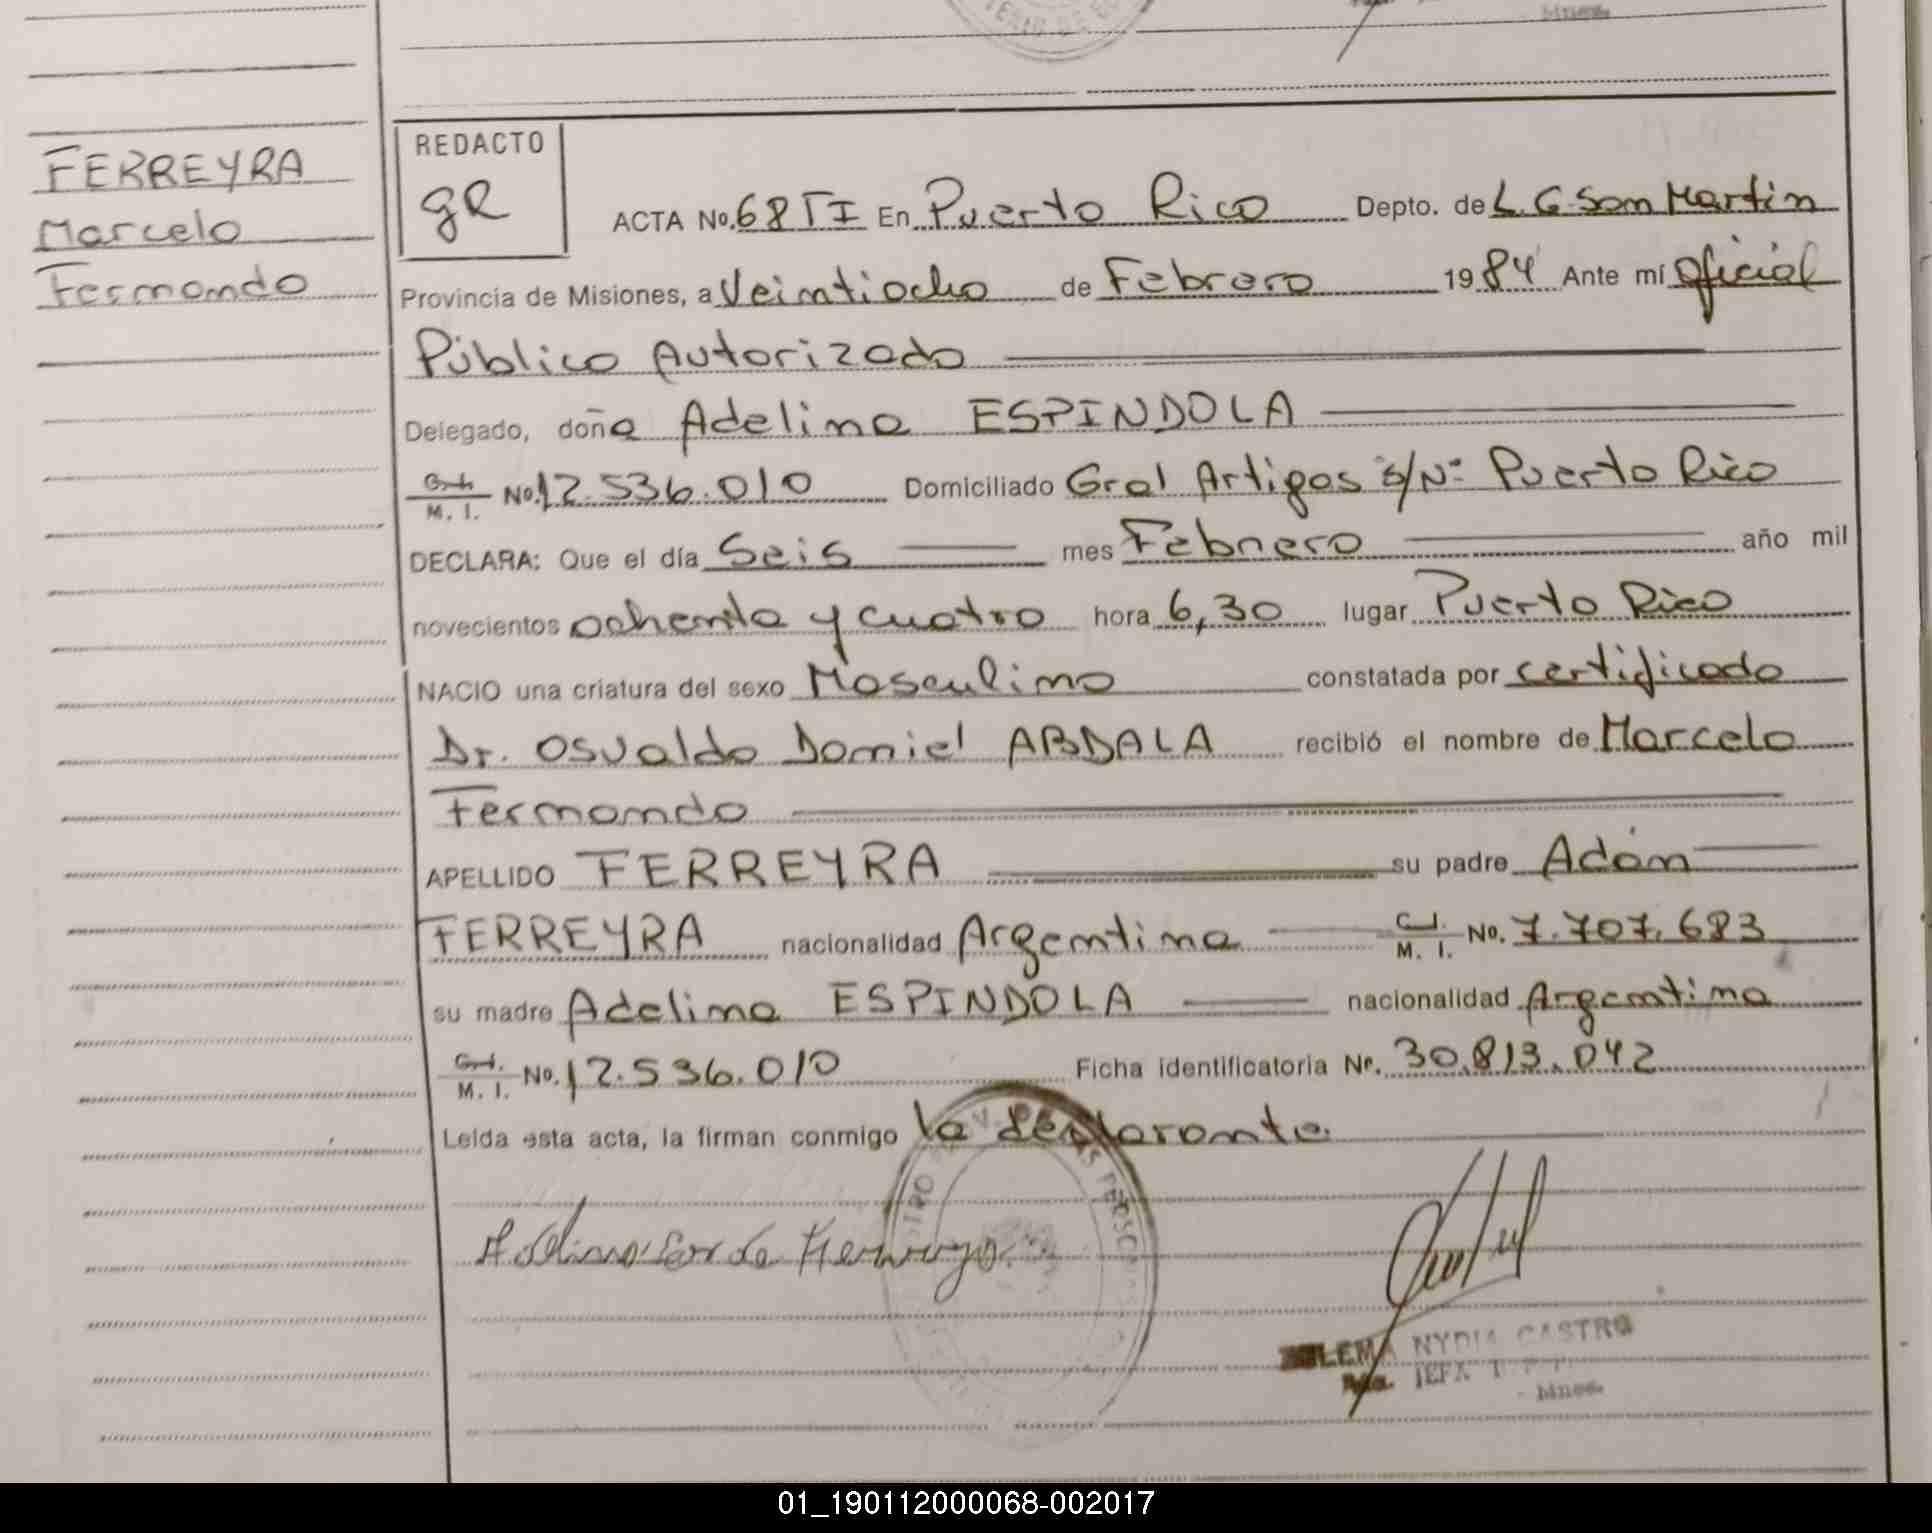 Mnes.
FERREYRA
Marcelo
Fernando
REDACTO
gR
ACTA No. 68 TI En Puerto Rico Depto. de L. G. San Martín
Provincia de Misiones, a Veintiocho de Febrero 1984 Ante mí Oficial
Público Autorizado
Delegado, doña Adelina ESPINDOLA
M. I. No. 12.536.010 Domiciliado Gral Artigas s/Nº Puerto Rico
DECLARA: Que el día Seis mes Febrero año mil
novecientos ochenta y cuatro hora 6,30 lugar Puerto Rico
NACIO una criatura del sexo Masculino constatada por certificado
Dr. Osvaldo Daniel ABDALA recibió el nombre de Marcelo
Fernando
APELLIDO FERREYRA su padre Adán
FERREYRA nacionalidad Argentina C.I. M. I. No. 7.707.683
su madre Adelina ESPINDOLA nacionalidad Argentina
C.I. M. I. No. 12.536.010 Ficha identificatoria Nº. 30.813.042
Leída esta acta, la firman conmigo la declarante.
NYDIA CASTRO
Mnes.
01_190112000068-002017